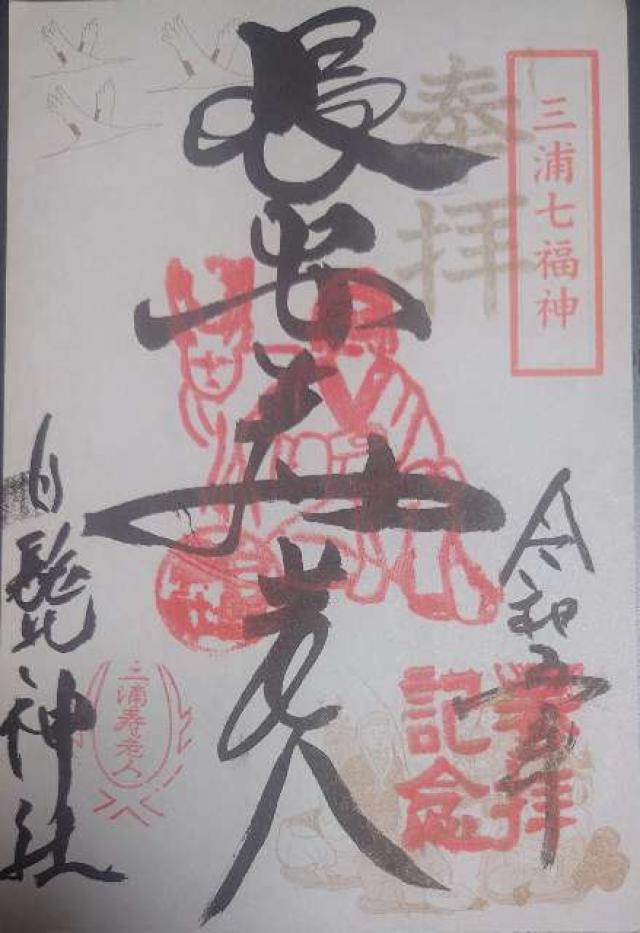 三浦七福神
奉拝
令和
年
参拝
記念
長安寿老人
三浦寿老人
白髭神社